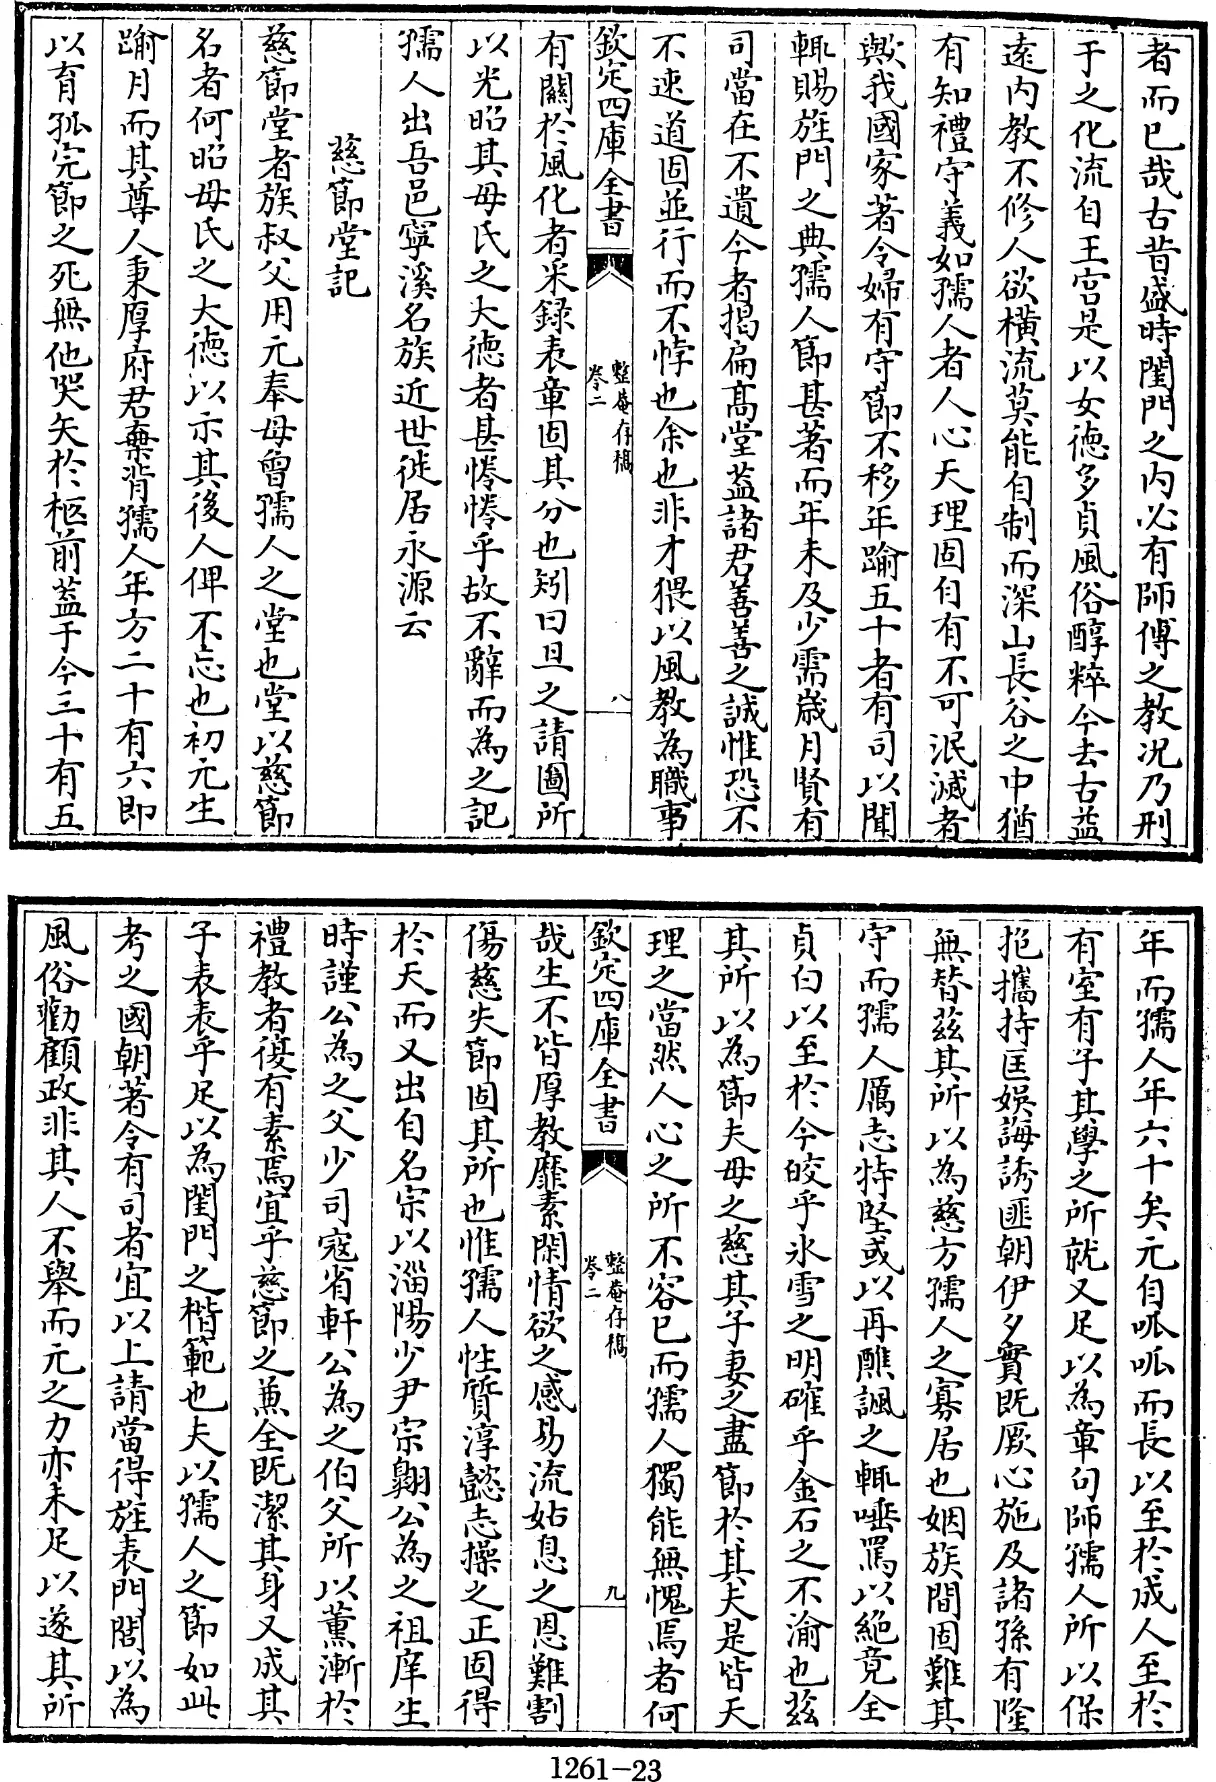 者而已哉古昔盛時閨門之内必有師傅之教况乃刑
于之化流自王宮是以女徳多貞風俗醇粹今去古益
逺内教不修人欲横流莫能自制而深山長谷之中猶
有知禮守義如孺人者人心天理固自有不可泯滅者
歟我國家著令婦有守節不移年踰五十者有司以聞
輒賜旌門之典孺人節甚著而年未及少需歲月賢有
司當在不遺今者揭扁髙堂葢諸君善善之誠惟恐不
不速道固並行而不悖也余也非才猥以風教為職事
欽定四庫全書
整菴存稿
卷二
八
有關於風化者采録表章固其分也矧曰旦之請圖所
以光昭其母氏之大徳者甚惓惓乎故不辭而為之記
孺人出吾邑寧溪名族近世徙居永源云
慈節堂記
慈節堂者族叔父用元奉母曾孺人之堂也堂以慈節
名者何昭母氏之大徳以示其後人俾不忘也初元生
踰月而其尊人秉厚府君棄背孺人年方二十有六即
以育孤完節之死無他哭矢於柩前葢于今三十有五
年而孺人年六十矣元自呱呱而長以至於成人至於
有室有子其學之所就又足以為章句師孺人所以保
抱攜持匡娛誨誘匪朝伊夕實既厥心施及諸孫有隆
無替兹其所以為慈方孺人之寡居也姻族間固難其
守而孺人厲志特堅或以再醮諷之輒唾罵以絶竟全
貞白以至於今皎乎氷雪之明確乎金石之不渝也兹
其所以為節夫母之慈其子妻之盡節於其夫是皆天
理之當然人心之所不容已而孺人獨能無愧焉者何
欽定四庫全書
整菴存稿
卷二
九
哉生不皆厚教靡素閑情欲之感易流姑息之恩難割
傷慈失節固其所也惟孺人性質淳懿志操之正固得
於天而又出自名宗以淄陽少尹宗翺公為之祖庠生
時謹公為之父少司寇省軒公為之伯父所以薫漸於
禮教者復有素焉宜乎慈節之兼全既潔其身又成其
子表表乎足以為閨門之楷範也夫以孺人之節如此
考之國朝著令有司者宜以上請當得旌表門閭以為
風俗勸顧政非其人不舉而元之力亦未足以遂其所
1261-23